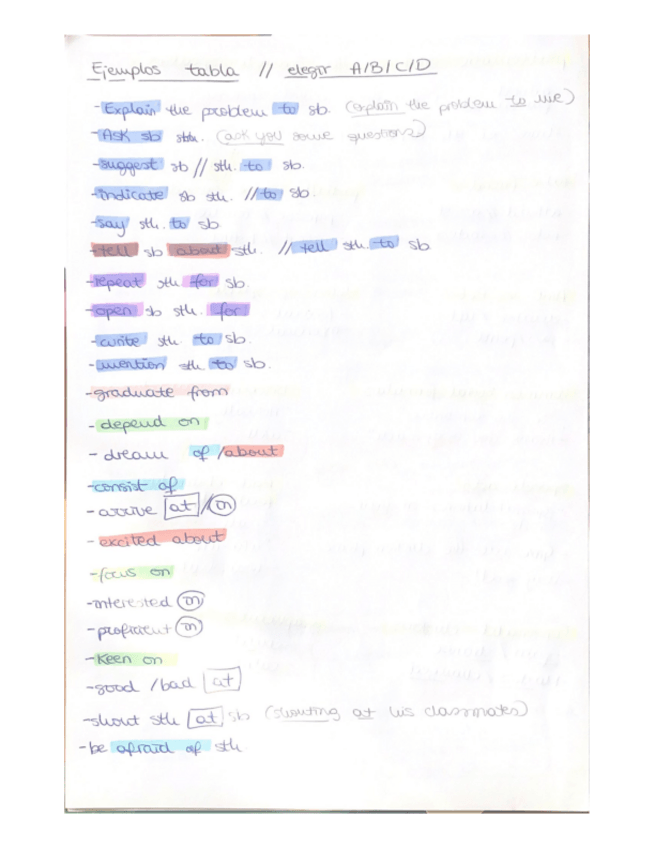 Ejemplos tabla // elegir A/B/C/D
-Explain the problem to sb. (explain the problem to me)
-Ask sb sth. (ask you some questions)
-suggest sb // sth. to sb.
-indicate sb sth. // to sb.
-say sth. to sb
-tell sb about sth. // tell sth. to sb
-repeat sth for sb
-open sb sth. for
-write sth. to sb.
-mention sth to sb.
-graduate from
-depend on
-dream of /about
-consist of
-arrive at / in
-excited about
-focus on
-interested in
-proficient in
-Keen on
-good /bad at
-shout sth at sb (shouting at his classmates)
-be afraid of sth.